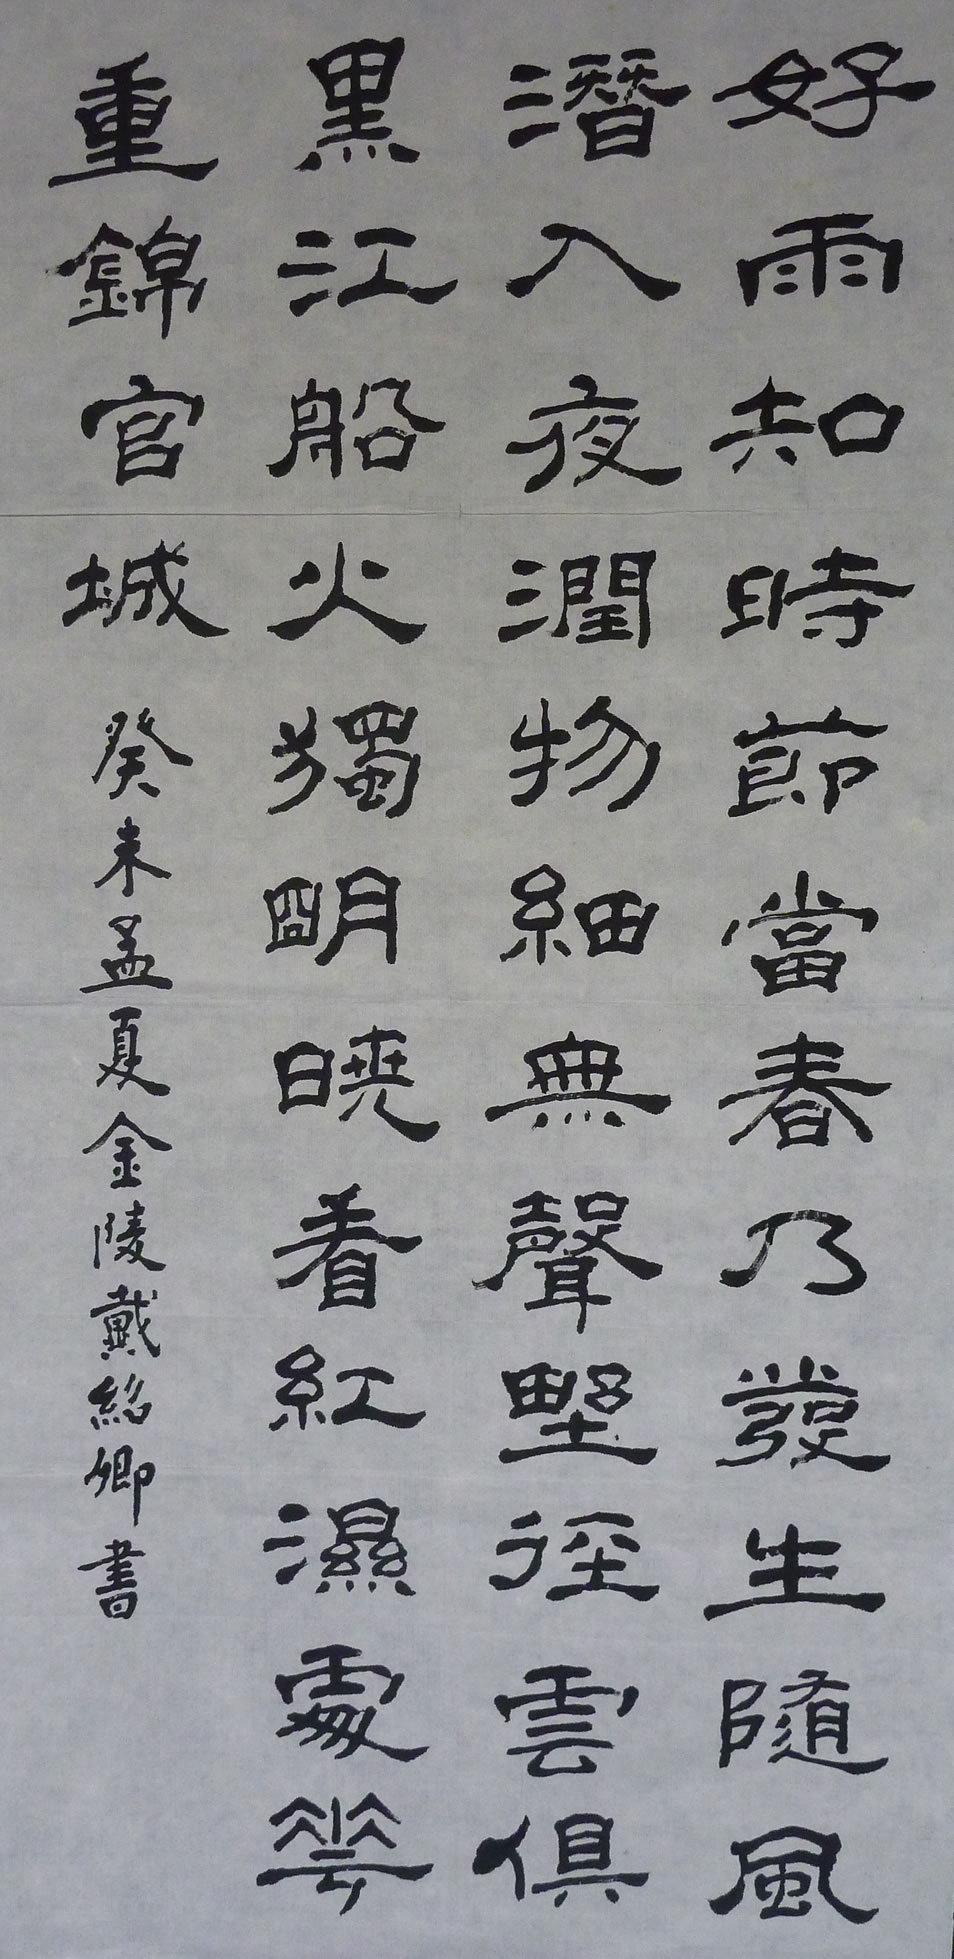 好雨知時節當春乃發生隨風
潛入夜潤物細無聲野徑雲俱
黑江船火獨明曉看紅濕處花
重錦官城
癸未孟夏金陵戴紹卿書